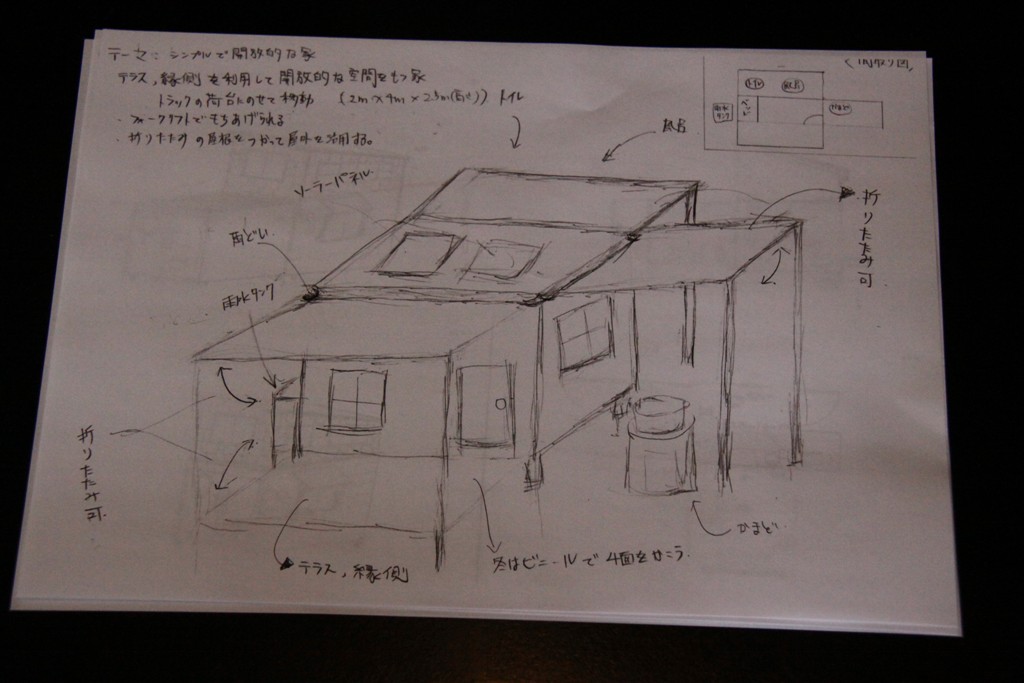 テーマ：シンプルで開放的な家
テラス，縁側を利用して開放的な空間をもつ家
トラックの荷台にのせて移動 (2m×4m×2.5m(高さ)) トイレ
・フォークリフトでもちあげられる
・折りたたみの屋根をつかって屋外を活用する。
間取り図
トイレ
風呂
雨水タンク
ベッド
かまど
風呂
ソーラーパネル
折りたたみ可
雨どい
雨水タンク
折りたたみ可
テラス，縁側
冬はビニールで4面をかこう.
かまど